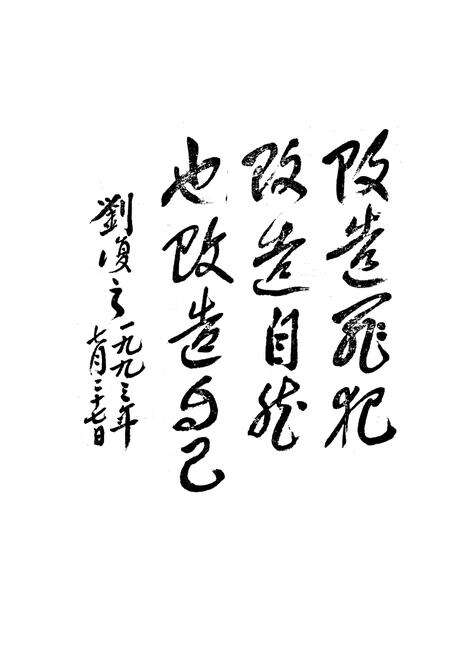 改造罪犯
改造自然
也改造自己
劉復之
一九九三年
七月二十七日